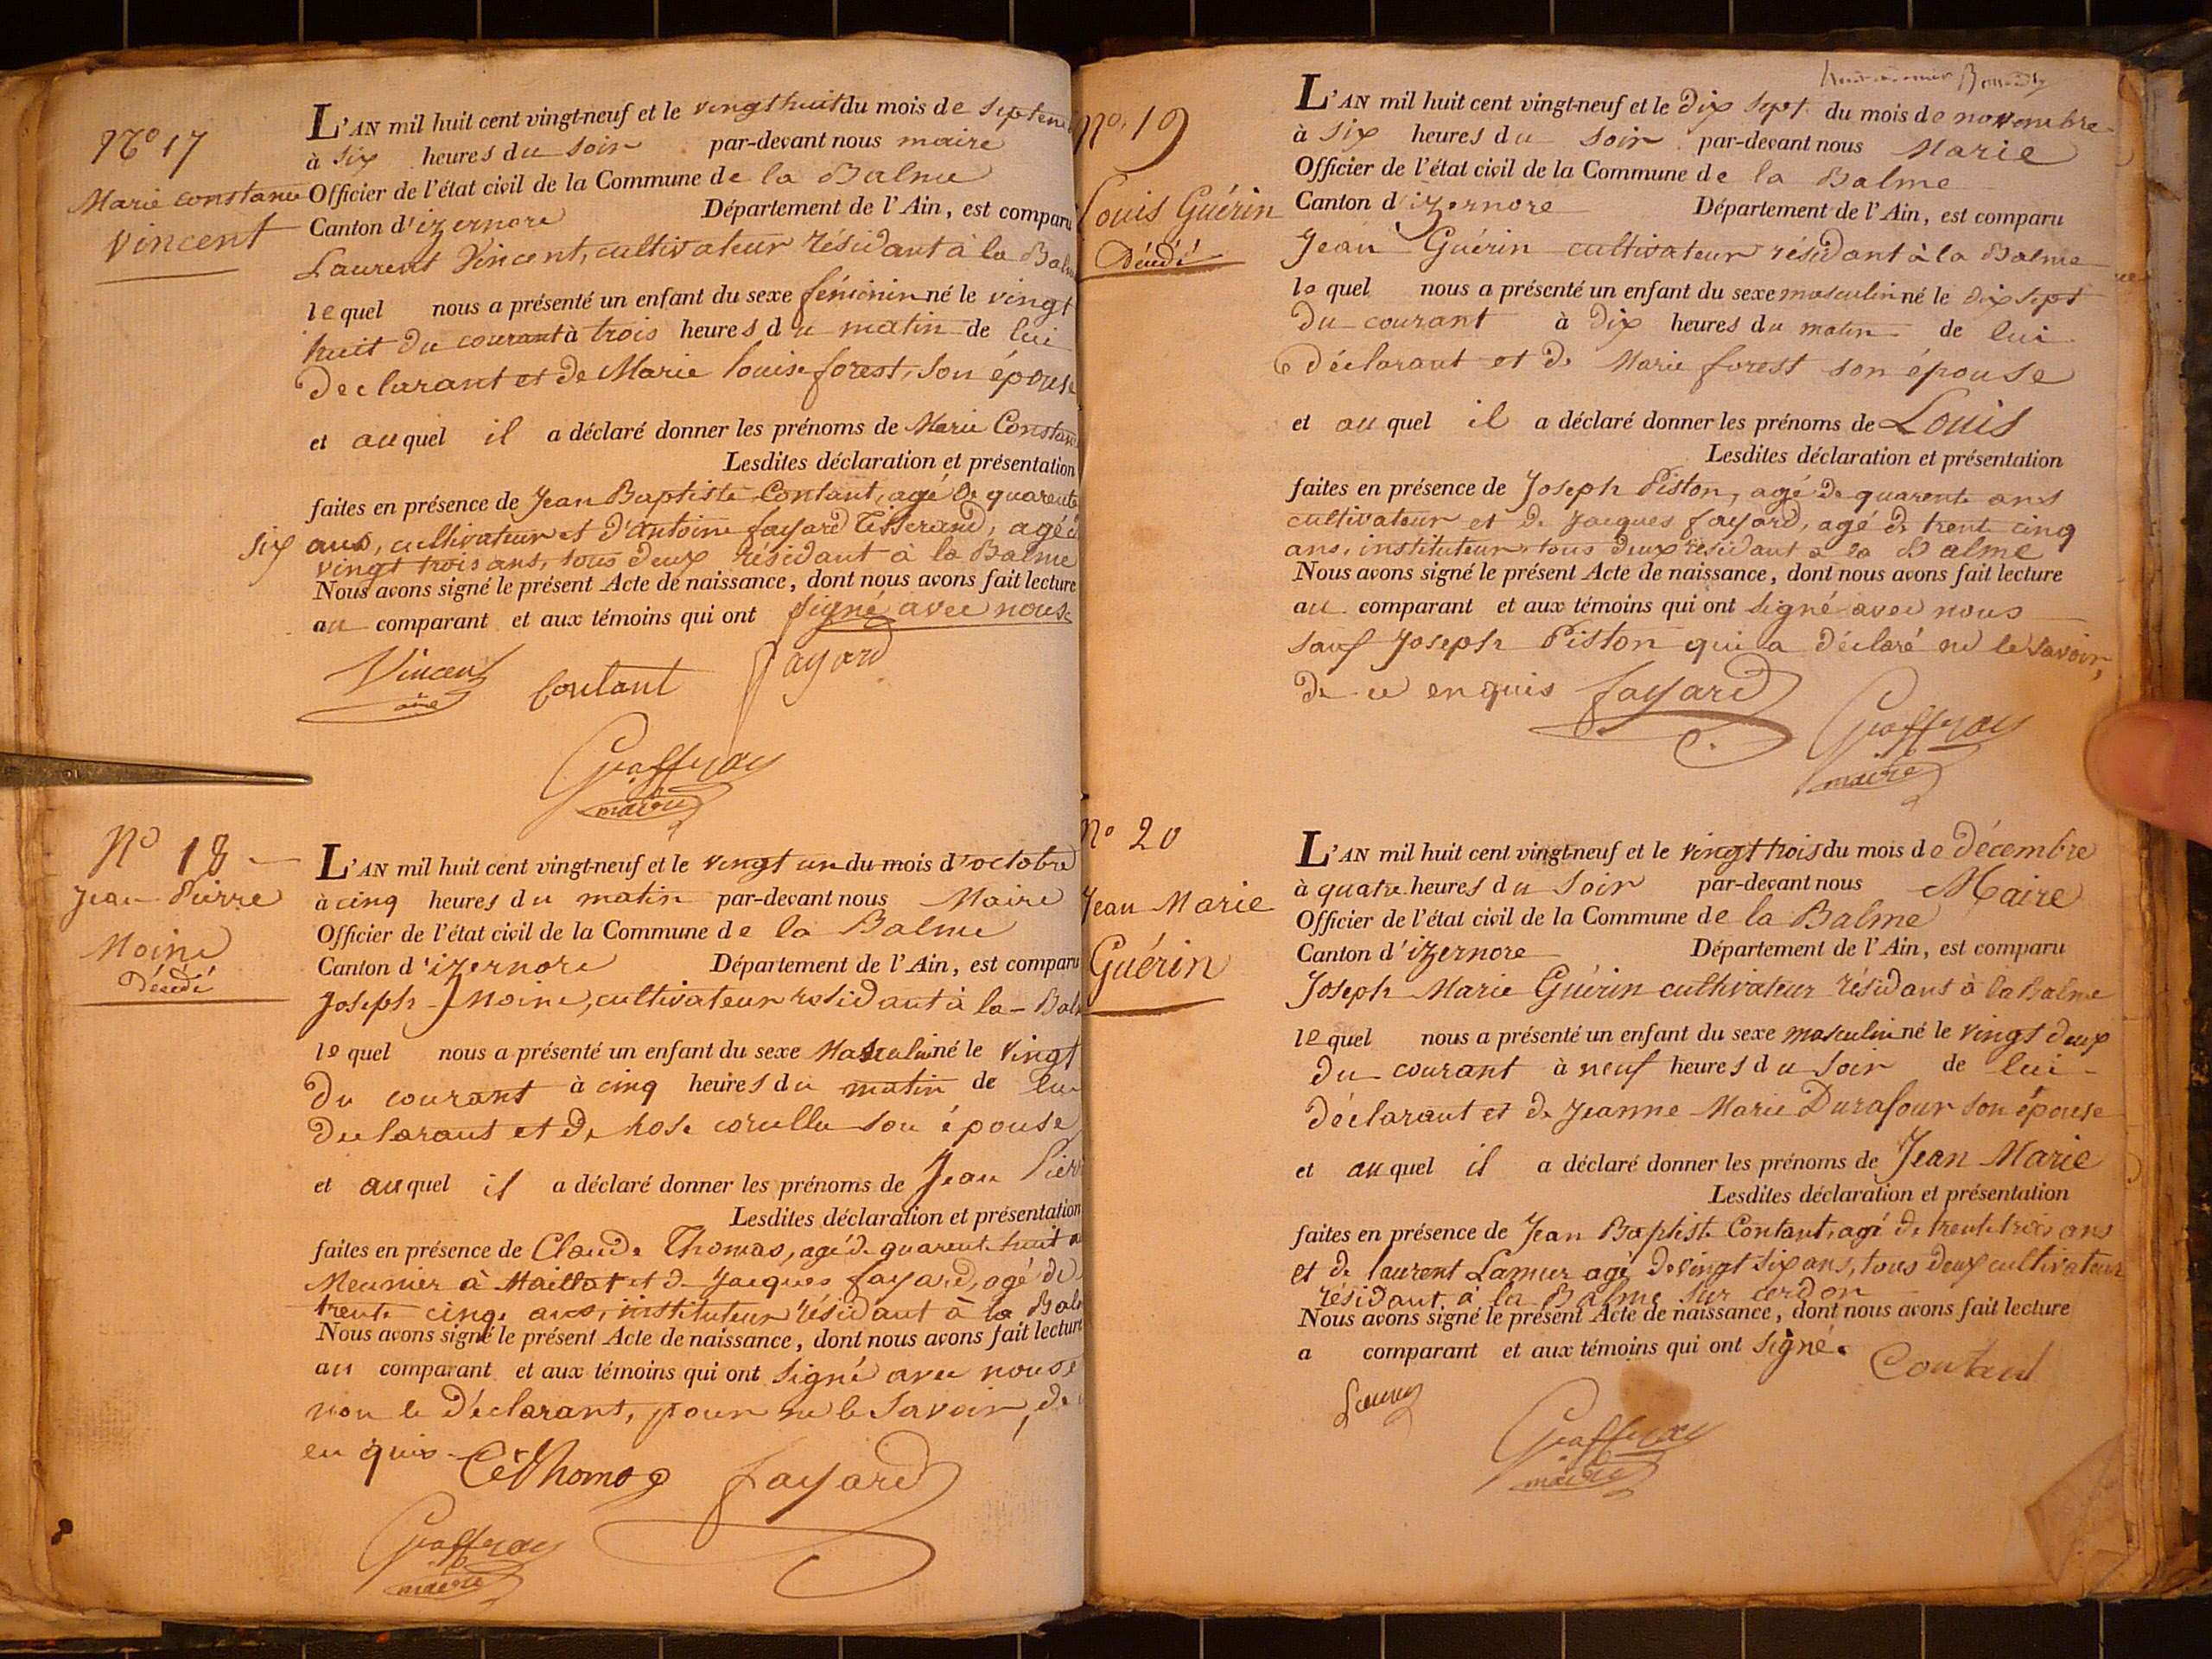 N° 17
Marie Constance
Vincent
L'AN mil huit cent vingt-neuf et le vingt huit du mois de septem
à six heures du soir par-devant nous maire
Officier de l'état civil de la Commune de la Balme
Canton d'izernore Département de l'Ain, est comparu
Laurent Vincent, cultivateur résidant à la Balm
lequel nous a présenté un enfant du sexe féminin né le vingt
huit du courant à trois heures du matin de lui
declarant et de Marie louise forest, son épouse
et auquel il a déclaré donner les prénoms de Marie Constance
Lesdites déclaration et présentation
faites en présence de Jean Baptiste Contant, agé de quarente
six ans, cultivateur et d'antoine fayard Tisserand, agé de
vingt trois ans, tous deux résidant à la Balme
Nous avons signé le présent Acte de naissance, dont nous avons fait lecture
au comparant et aux témoins qui ont signé avec nous
Vincent
Contant
fayard
maire
N° 18
Jean Pierre
Moine
Décédé
L'AN mil huit cent vingt-neuf et le vingt un du mois d'octobre
à cinq heures du matin par-devant nous Maire
Officier de l'état civil de la Commune de la Balme
Canton d'izernore Département de l'Ain, est comparu
Joseph Moine, cultivateur residant à la Balm
lequel nous a présenté un enfant du sexe Masculin né le vingt
du courant à cinq heures du matin de lui
declarant et de son épouse
et auquel il a déclaré donner les prénoms de Jean Pierr
Lesdites déclaration et présentation
faites en présence de Claude Thomas, agé de quarente huit a
Meunier à Maillat et de Jacques fayard, agé de
trente cinq ans, instituteur résidant à la Balm
Nous avons signé le présent Acte de naissance, dont nous avons fait lecture
au comparant et aux témoins qui ont signé avec nous
non le déclarant, pour ne le savoir, de
enquis
Thomas
fayard
maire
N° 19
Louis Guérin
Décédé
L'AN mil huit cent vingt-neuf et le dix sept du mois de novembre
à six heures du soir par-devant nous Marie
Officier de l'état civil de la Commune de la Balme
Canton d'izernore Département de l'Ain, est comparu
Jean Guérin cultivateur résidant à la Balme
lequel nous a présenté un enfant du sexe masculin né le dix sept
du courant à dix heures du matin de lui
déclarant et de Marie forest son épouse
et auquel il a déclaré donner les prénoms de Louis
Lesdites déclaration et présentation
faites en présence de Joseph Piston, agé de quarente ans
cultivateur et de Jacques fayard, agé de trente cinq
ans, instituteur tous deux résidant à la Balme
Nous avons signé le présent Acte de naissance, dont nous avons fait lecture
au comparant et aux témoins qui ont signé avec nous
sauf Joseph Piston qui a déclaré ne le savoir,
de ce enquis
fayard
maire
N° 20
Jean Marie
Guérin
L'AN mil huit cent vingt-neuf et le vingt trois du mois de décembre
à quatre heures du soir par-devant nous Maire
Officier de l'état civil de la Commune de la Balme
Canton d'izernore Département de l'Ain, est comparu
Joseph Marie Guérin cultivateur résidant à la Balme
lequel nous a présenté un enfant du sexe masculin né le vingt deux
du courant à neuf heures du soir de lui
déclarant et de Jeanne Marie Durafour son épouse
et auquel il a déclaré donner les prénoms de Jean Marie
Lesdites déclaration et présentation
faites en présence de Jean Baptiste Contant, agé de trente trois ans
et de laurent Lamur agé de vingt six ans, tous deux cultivateur
résidant à la Balme sur cerdon
Nous avons signé le présent Acte de naissance, dont nous avons fait lecture
a comparant et aux témoins qui ont signé.
Contant
maire